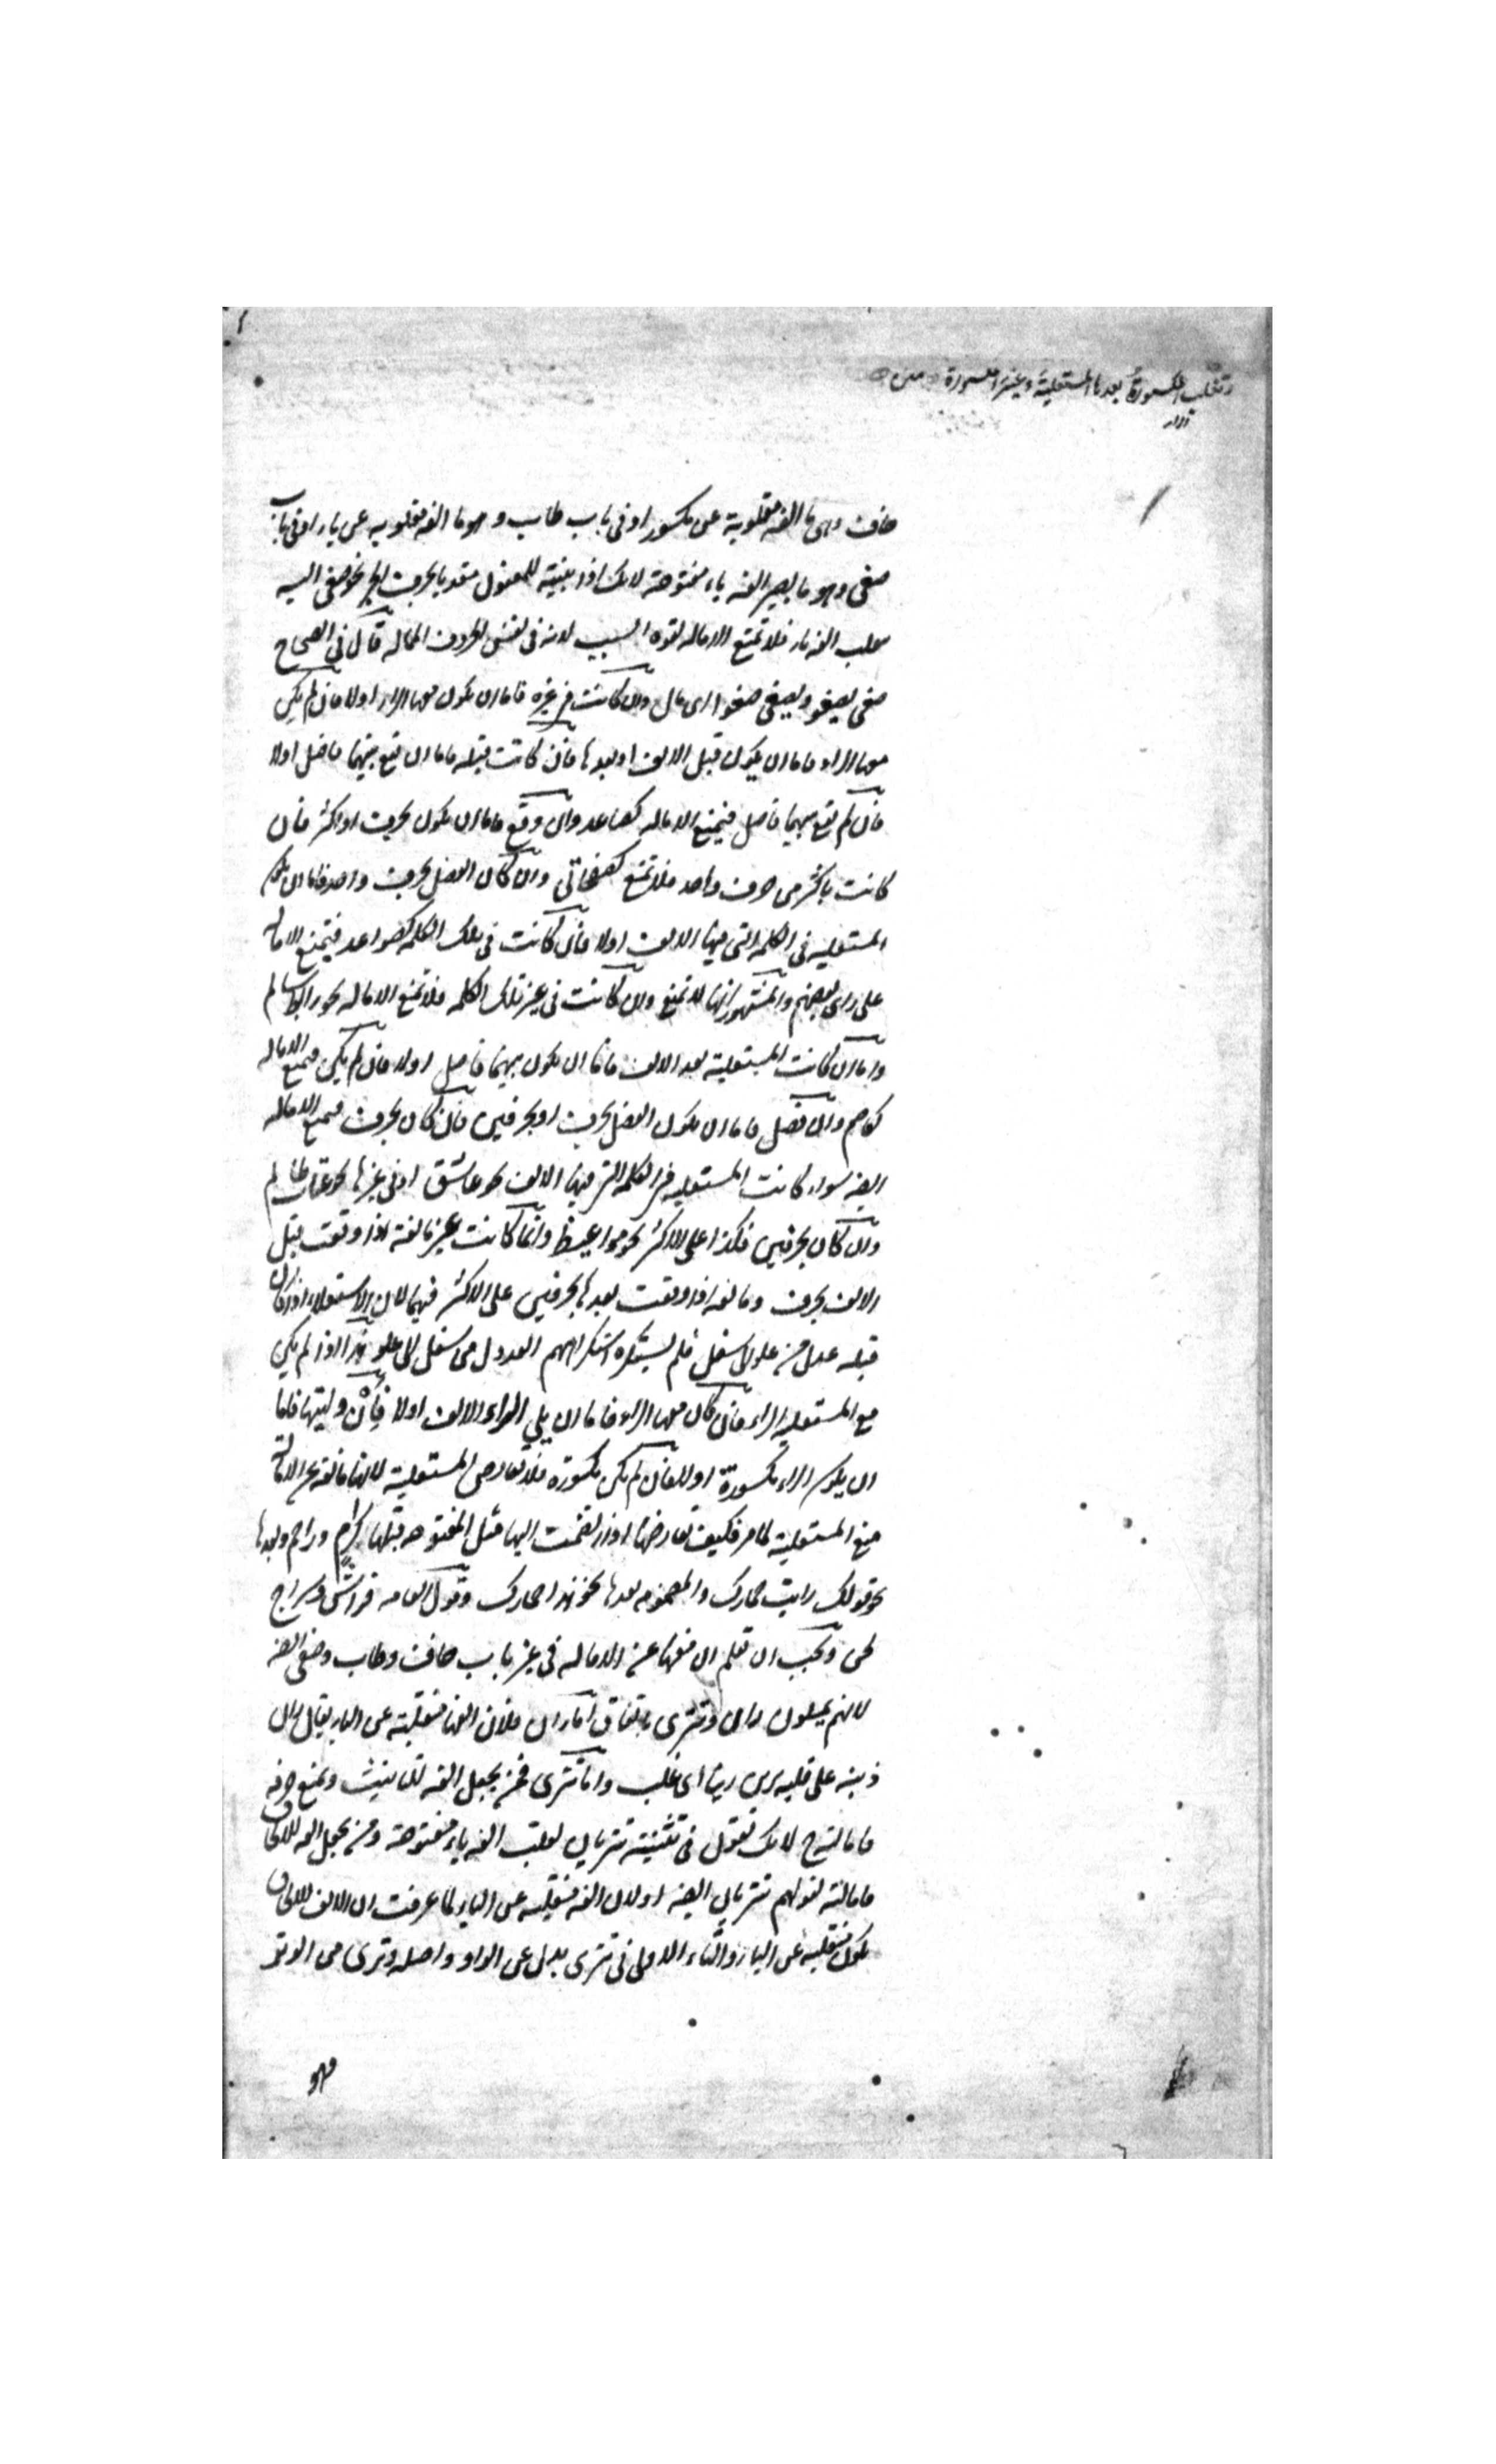 وتغلب المكسورة بعدها المستعلية وغير المكسورة منه
الراء
خاف وهي ما الفه مقلوبة عن مكسور او في باب طاب وهو ما الفه مقلوبه عن ياء او في باب
صغى وهو ما يصير الفه ياء مفتوحة لانك اذا بنيته للمفعول مقيدا بحرف الجر نحو صغي اليه
تقلب الفه ياء فلا تمنع الاماله لقوة السبب لانه في نفس الحروف الممالة قال في الصحاح
صغى يصغو ويصغى صغوا اى مال وان كانت في غيره فاما ان يكون معها الراء اولا فان لم يكن
معها الراء فاما ان يكون قبل الالف او بعدها فان كانت قبله فاما ان تقع بينهما فاصل اولا
فان لم يقع بينهما فاصل فيمنع الاماله كصاعد وان وقع فاما ان يكون بحرف او اكثر فان
كانت باكثر من حرف واحد فلا تمنع كصفحاتي وان كان الفصل بحرف واحد فاما ان يكون
المستعليه في الكلمه التى فيها الالف اولا فان كانت في تلك الكلمه كصواعد فيمنع الاماله
على راى بعضهم والمشهور انها لا تمنع وان كانت في غير تلك الكلمه فلا تمنع الاماله نحو رابط سالم
واما ان كانت المستعلية بعد الالف فاما ان يكون بينهما فاصل اولا فان لم يكن فيمنع الاماله
كعاصم وان فصل فاما ان يكون الفصل بحرف او بحرفين فان كان بحرف فيمنع الاماله
ايضا سواء كانت المستعليه في الكلمه التى فيها الالف نحو عاشق او في غيرها نحو عتاب ظالم
وان كان بحرفين فكذا على الاكثر نحو مواعيظ وانما كانت غير مانعة اذا وقعت قبل
الالف بحرف ومانعه اذا وقعت بعدها بحرفين على الاكثر فيهما لان الاستعلاء اذا كان
قبله عدل من علو الى سفل فلم يستكره استكراههم العدول من سفل الى علو هذا اذا لم يكن
مع المستعليه الراء فان كان معها الراء فاما ان يلي الراء الالف اولا فإنْ وليتها فاما
ان يكون الراء مكسورة اولا فان لم يكن مكسورة فلا تعارض المستعلية لانها مانعة عن الاماله
منع المستعلية لما مر فكيف تعارضها اذا انضمت اليها مثل المفتوحه قبلها كرام وراحم وبعدها
نحو قولك رايت حمارك والمضمومه بعدها نحو هذا حمارك وقول العامه فراش وسراج
لحن ويجب ان تعلم ان منعها عن الاماله في غير باب خاف وطاب وصغى ايضا
لانهم يميلون ران وتترى باتفاق اما ران فلان الفها منقلبة عن الياء يقال ران
ذنبه على قلبه يرين رينا اى غلب واما تترى فمن يجعل الفه للتانيث ويمنع صرفه
فامالته لانك تقول في تثنيته تتريان بقلب الفه ياء مفتوحة ومن يجعل الفه للالحاق
فامالته لقولهم تتريان ايضا اولان الفه منقلبه عن الياء لما عرفت ان الالف للالحاق
يكون منقلبه عن الياء والتاء الاولى في تترى بدل عن الواو واصله وترى من الوتر
فهو